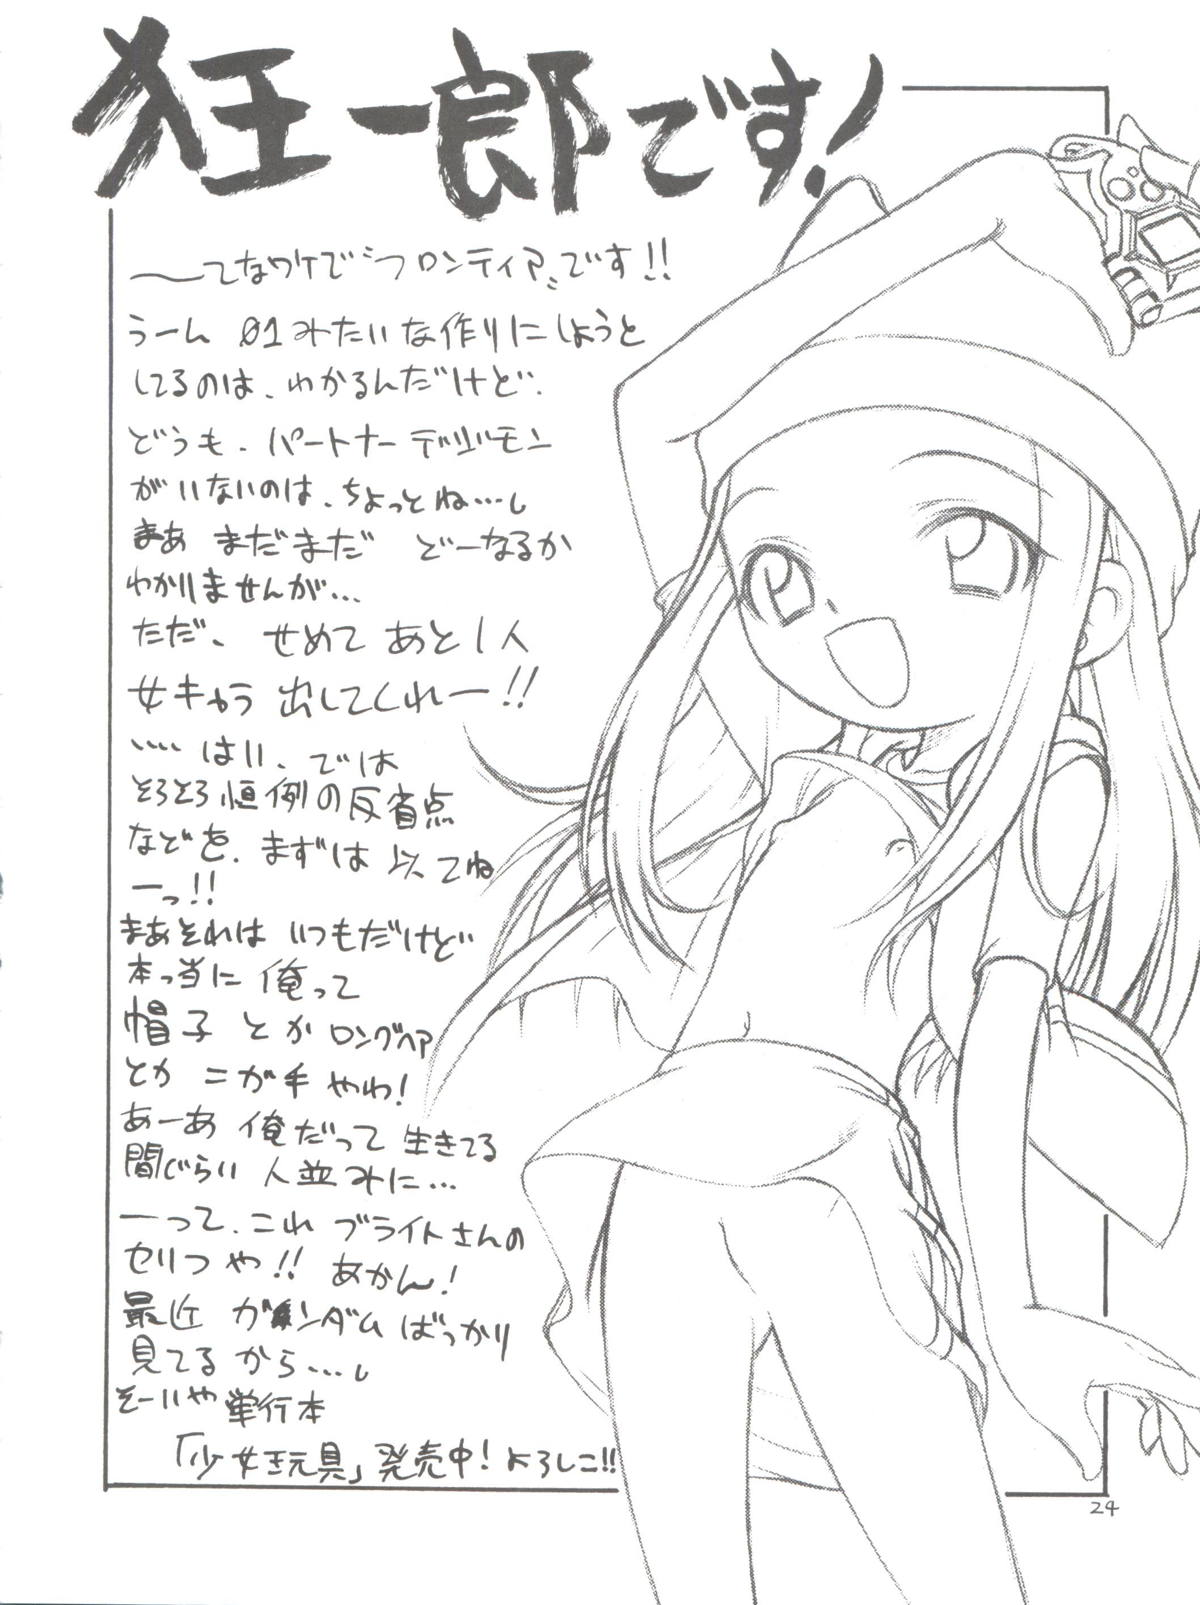 狂一郎です!
〜てなワケで“フロンティア”です!!
うーん 01みたいな作りにしようと
してるのは、わかるんだけど、
どうも、パートナーデジモン
がいないのは、ちょっとね…し
まあ まだまだ どーなるか
わかりませんが…
ただ、せめて あと1人
女キャラ 出してくれー!!
…… はい、では
そろそろ恒例の反省点
などを、まずは 似てね
ーっ!!
まあそれは いつもだけど
本っ当に 俺って
帽子 とか ロングヘア
とか ニガ手 やわ!
あーあ 俺だって 生きてる
間じらい 人並みに…
ーって、これ ブライトさんの
セリフや!! あかん!
最近 ガンダム ばっかり
見てる から…し
そーいや 単行本
「少女玩具」発売中! よろしこ!!
24